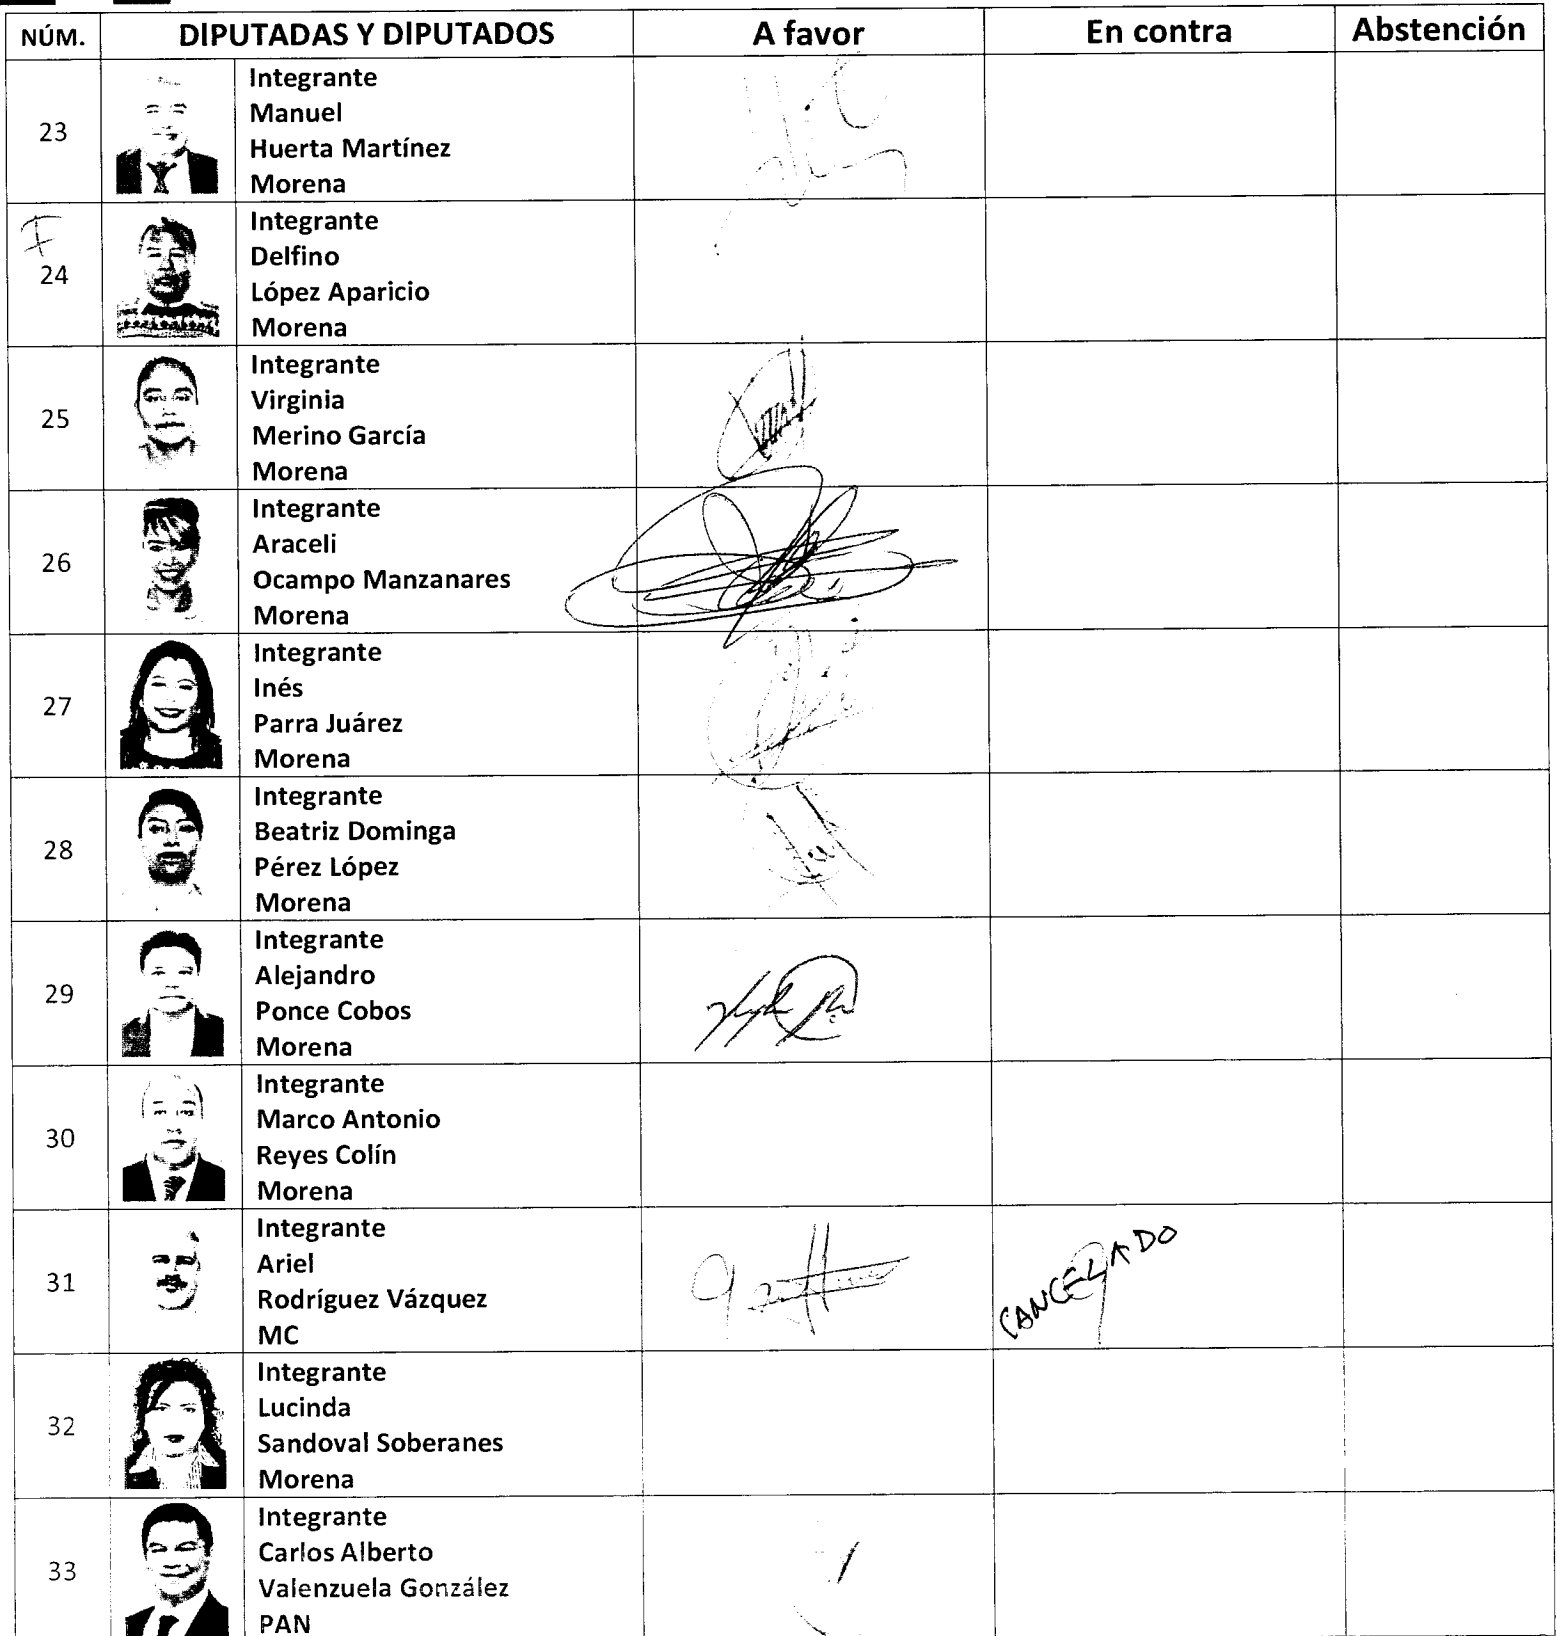 NÚM. DIPUTADAS Y DIPUTADOS A favor En contra Abstención
23
Integrante
Manuel
Huerta Martínez
Morena
24
Integrante
Delfino
López Aparicio
Morena
25
Integrante
Virginia
Merino García
Morena
26
Integrante
Araceli
Ocampo Manzanares
Morena
27
Integrante
Inés
Parra Juárez
Morena
28
Integrante
Beatriz Dominga
Pérez López
Morena
29
Integrante
Alejandro
Ponce Cobos
Morena
30
Integrante
Marco Antonio
Reyes Colín
Morena
31
Integrante
Ariel
Rodríguez Vázquez
MC
CANCELADO
32
Integrante
Lucinda
Sandoval Soberanes
Morena
33
Integrante
Carlos Alberto
Valenzuela González
PAN